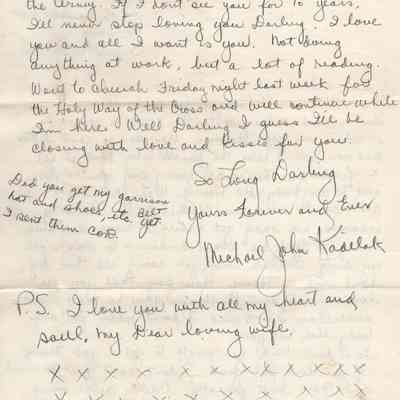 the Army. If I don't see you for 10 years,
I'll never stop loving you Darling. I love
you and all I want is you. Not doing
anything at work, but a lot of reading.
Went to Church Friday night last week for
the Holy Way of the Cross and will continue while
I'm here. Well Darling I guess I'll be
closing with love and kisses for you.
So Long Darling
Yours Forever and Ever
Michael John Kadelak
Did you get my garrison
hat and shoes, etc. belt
I sent them C.O.D. yet
P.S. I love you with all my heart and
soul, my Dear loving wife.
X X X X X X X X X X X
X X X X X X X X X X